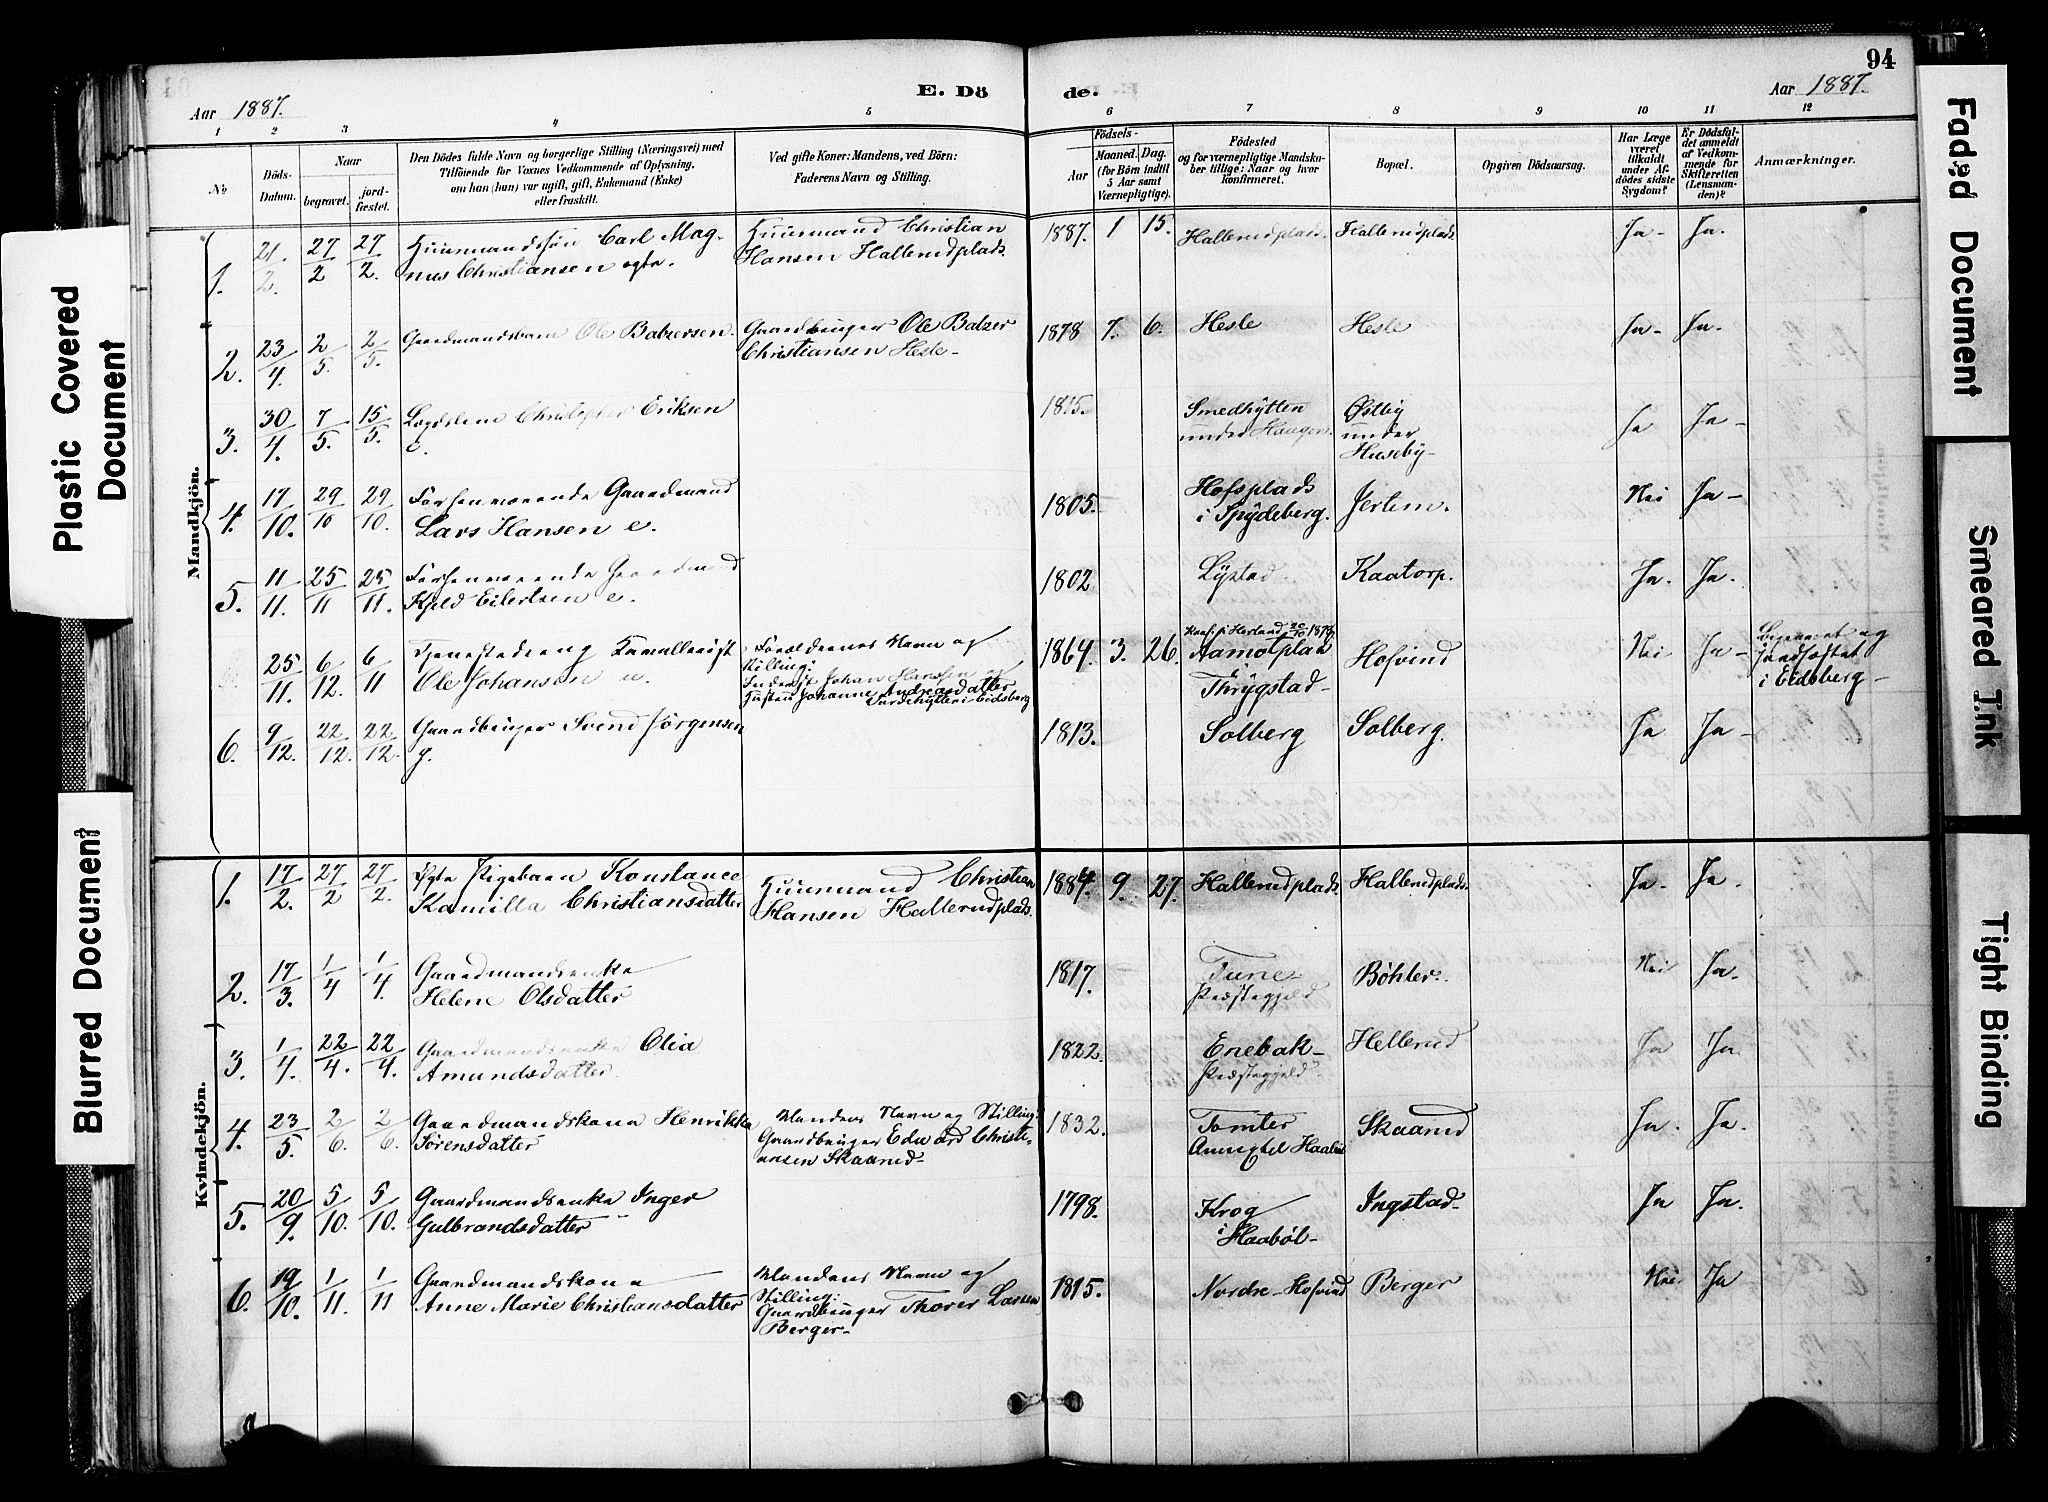 94
Aar 1887.
E. Dö
de.
Aar 1887.
1 2 3 4 5 6 7 8 9 10 11 12
№
Döds-
Datum.
Naar
begravet.
jord-
fæstet.
Den Dödes fulde Navn og borgerlige Stilling (Næringsvei) med
Tilföiende for Voxnes Vedkommende af Oplysning,
om han (hun) var ugift, gift, Enkemand (Enke)
eller fraskilt.
Ved gifte Koner: Mandens, ved Börn:
Faderens Navn og Stilling.
Födsels-
Aar
Maaned. Dag.
(for Börn indtil
5 Aar samt
Værnepligtige).
Födested
og for værnepligtige Mandskaber
tillige: Naar og hvor
konfirmeret.
Bopæl.
Opgiven Dödsaarsag.
Har Læge
været
tilkaldt
under Af-
dödes sidste
Sygdom?
Er Dödsfal-
det anmeldt
af Vedkom-
mende for
Skifteretten
(Lensman-
den)?
Anmærkninger.
Mandkjön.
1. 21/2. 27/2 27/2. Huusmandssøn Carl Mag- Huusmand Christian 1887. 1 15. Hallerudplads. Hallerudplads. Ja- Ja.
nus Christiansen ægte. Hansen Hallerudplads.
2. 23/4. 2/5. 2/5. Gaardmandsbarn Ole Balzersen. Gaardbruger Ole Balzer 1878 7. 6. Hesle Hesle Ja- Ja.
Christiansen Hesle-
3. 30/4. 7/5. 15/5. Lægdslem Christopher Eriksen 1815. Smedhytten Østby Ja Ja-
e. under Haugen. under
Huseby-
4. 17/10. 29/10 29/10. Forhenværende Gaardmand 1805. Hofsplads Jertem. Nei Ja-
Lars Hansen e. i Spydeberg.
5. 11/11. 25/11 25/11. Forhenværende Gaardmand 1802 Lystad. Kaatorp. Ja. Ja.
Kjeld Eilertsen e.
25/11. 6/12. 6/11 Tjenestedreng Kavallerist Forældrenes Navn og 1864. 3. 26. Konf. i Herland 20/10 1878 Hofvind Nei Ja- Begravet og
Ole Johansen u. Stilling: Aamotplad jordfæstet
Inderst Johan Hansen og i i Eidsberg-
Hustru Johanne Andreasdatter Thrygstad-
i Eidsberg
6. 9/12. 22/12. 22/12. Gaardbruger Svend Jørgensen 1813. Solberg Solberg. Ja Ja-
g.
Kvindekjön.
1. 17/2. 27/2 27/2. Ægte Pigebarn Konstance Huusmand Christian 1884. 9. 27. Hallerudplads. Hallerudplads. Ja. Ja.
Kamilla Christiansdatter Hansen Hallerudplads.
2. 17/3. 1/4 1/4. Gaardmandsenke 1817. Tune Bøhler. Nei Ja.
Helene Olsdatter Præstegjeld
3. 1/4. 22/4. 22/4. Gaardmandsenke Olia 1822. Enebak- Hellerud Ja Ja.
Amundsdatter. Præstegjeld.
4. 23/5. 2/6. 2/6. Gaardmandskona Henrikka Mandens Navn og Stilling: 1832. Tomter Skaarud Ja. Ja.
Sørensdatter Gaardbruger Edvard Christi-
ansen Skaarud-
5. 20/9. 5/10. 5/10. Gaardmandsenke Inger 1798. Krog Ingstad- Ja Ja.
Gulbrandsdatter i Haabøl-
6. 19/10. 1/11. 1/11 Gaardmandskona Mandens Navn og 1815. Nordre-Hofvind Berger Nei Ja
Anne Marie Christiansdatter Stilling:
Gaardbruger Thorer Larsen
Berger-
Plastic Covered
Document
Blurred Document
Faded Document
Smeared Ink
Tight Binding